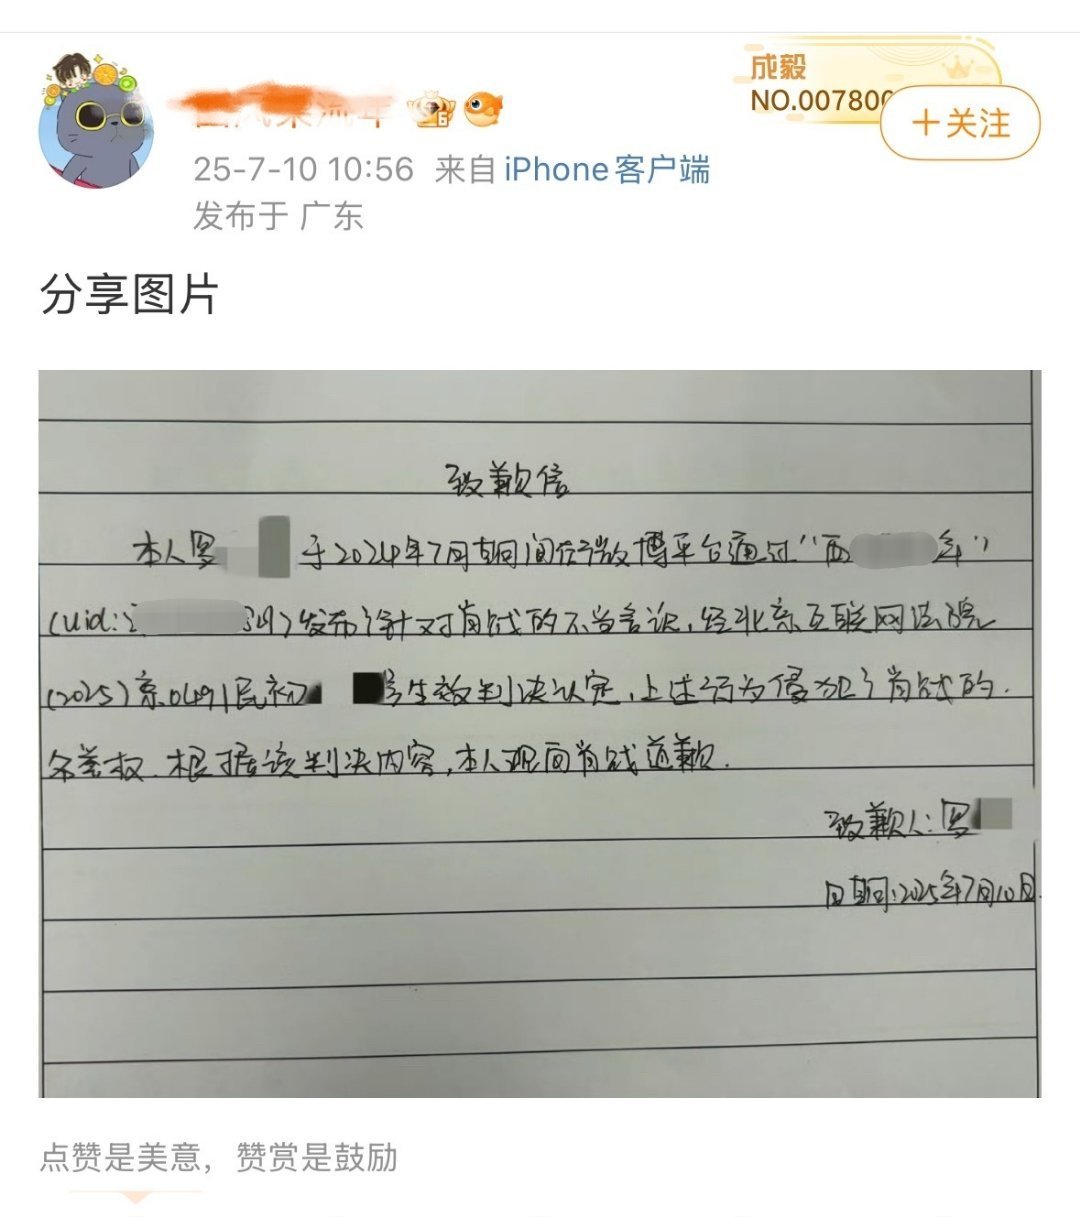 成毅
NO.007800
+关注
25-7-10 10:56 来自 iPhone客户端
发布于 广东
分享图片
致歉信
本人罗 于2024年7月期间在微博平台通过“西 年”
(uid: 39)发布针对肖战的不当言论,经北京互联网法院
(2025)京0491民初 号生效判决认定,上述行为侵犯了肖战的
名誉权.根据该判决内容,本人现向肖战道歉.
致歉人:罗
日期:2025年7月10日.
点赞是美意，赞赏是鼓励